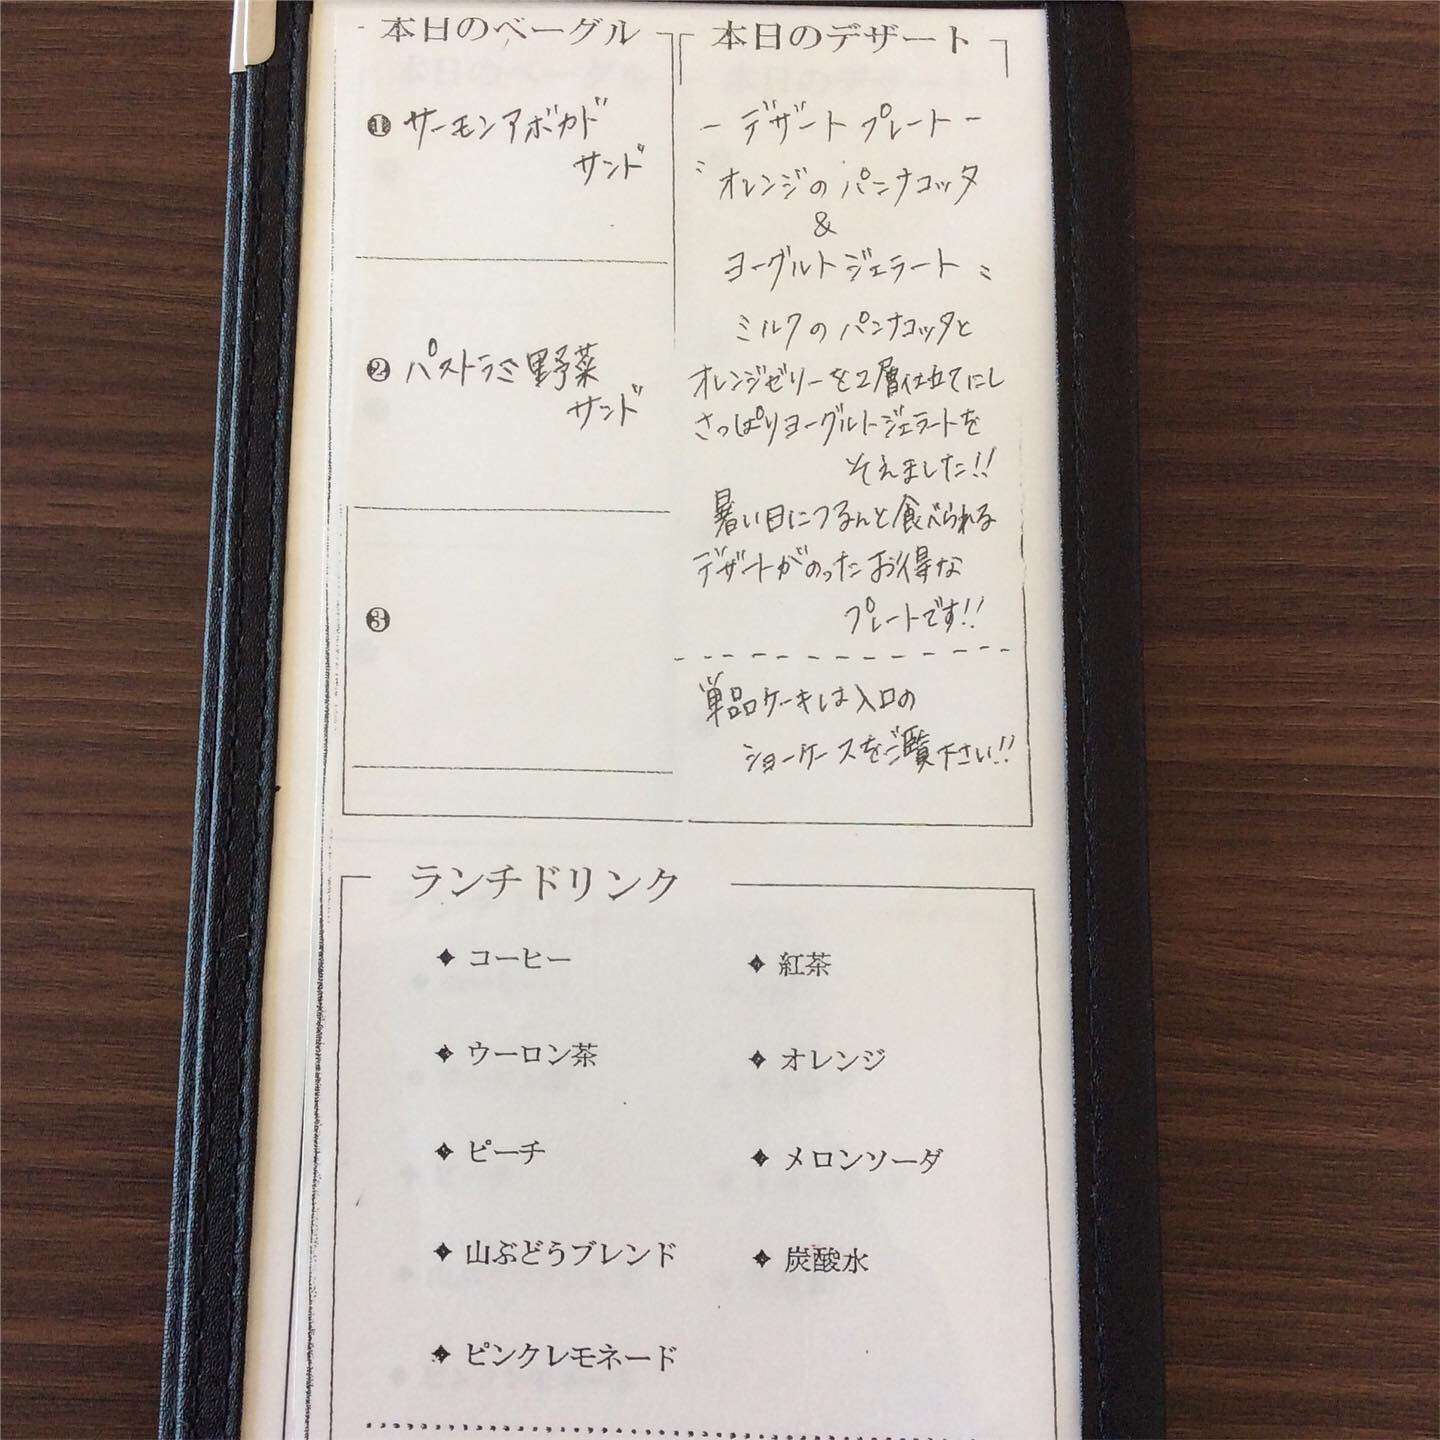 本日のベーグル
❶ サーモンアボカド
サンド
❷ パストラミ野菜
サンド
❸
本日のデザート
－ デザートプレート －
〝オレンジのパンナコッタ
&
ヨーグルトジェラート〟
ミルクのパンナコッタと
オレンジゼリーを2層仕立てにし
さっぱりヨーグルトジェラートを
そえました!!
暑い日につるんと食べられる
デザートがのったお得な
プレートです!!
単品ケーキは入口の
ショーケースをご覧下さい!!
ランチドリンク
✦ コーヒー
✦ 紅茶
✦ ウーロン茶
✦ オレンジ
✦ ピーチ
✦ メロンソーダ
✦ 山ぶどうブレンド
✦ 炭酸水
✦ ピンクレモネード